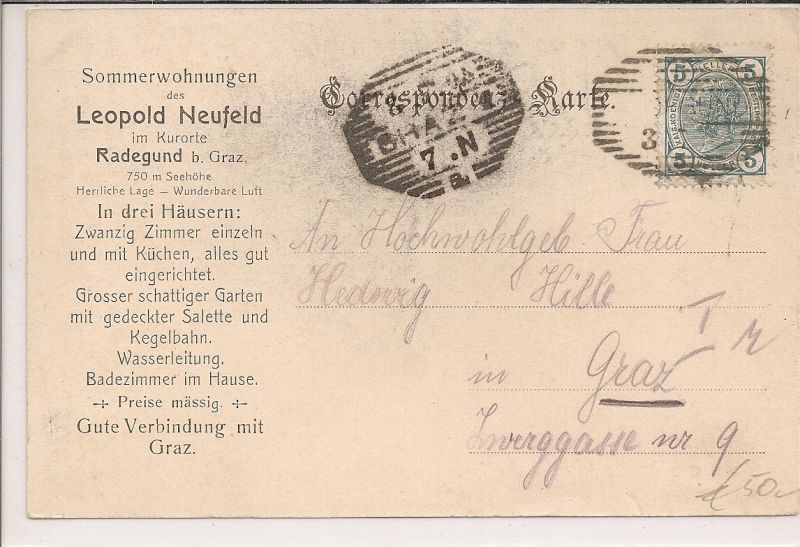 Sommerwohnungen
des
Leopold Neufeld
im Kurorte
Radegund b. Graz,
750 m Seehöhe
Herrliche Lage — Wunderbare Luft
In drei Häusern:
Zwanzig Zimmer einzeln
und mit Küchen, alles gut
eingerichtet.
Grosser schattiger Garten
mit gedeckter Salette und
Kegelbahn.
Wasserleitung.
Badezimmer im Hause.
Preise mässig.
Gute Verbindung mit
Graz.
Correspondenz-Karte.
GRAZ
7.N
5 HELLER 5
5 HELLER 5
An Hochwohlgeb. Frau
Hedwig Hille
in Graz I
Zwerggasse nr 9
50